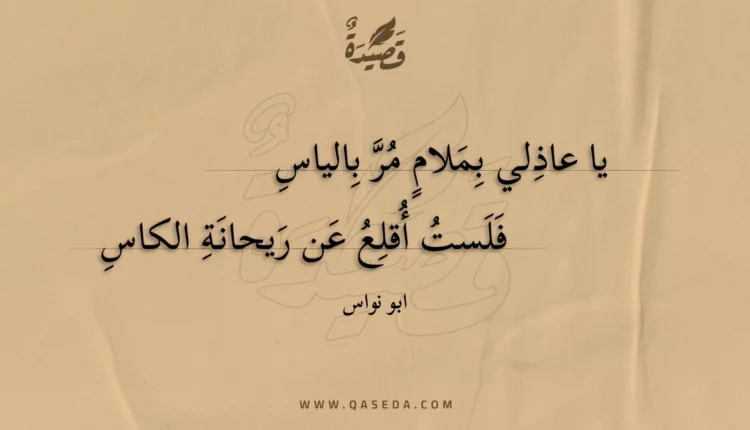 قَصِيدَةٌ
يا عاذِلي بِمَلامٍ مُرَّ بِالياسِ
فَلَستُ أُقلِعُ عَن رَيحانَةِ الكاسِ
ابو نواس
WWW.QASEDA.COM